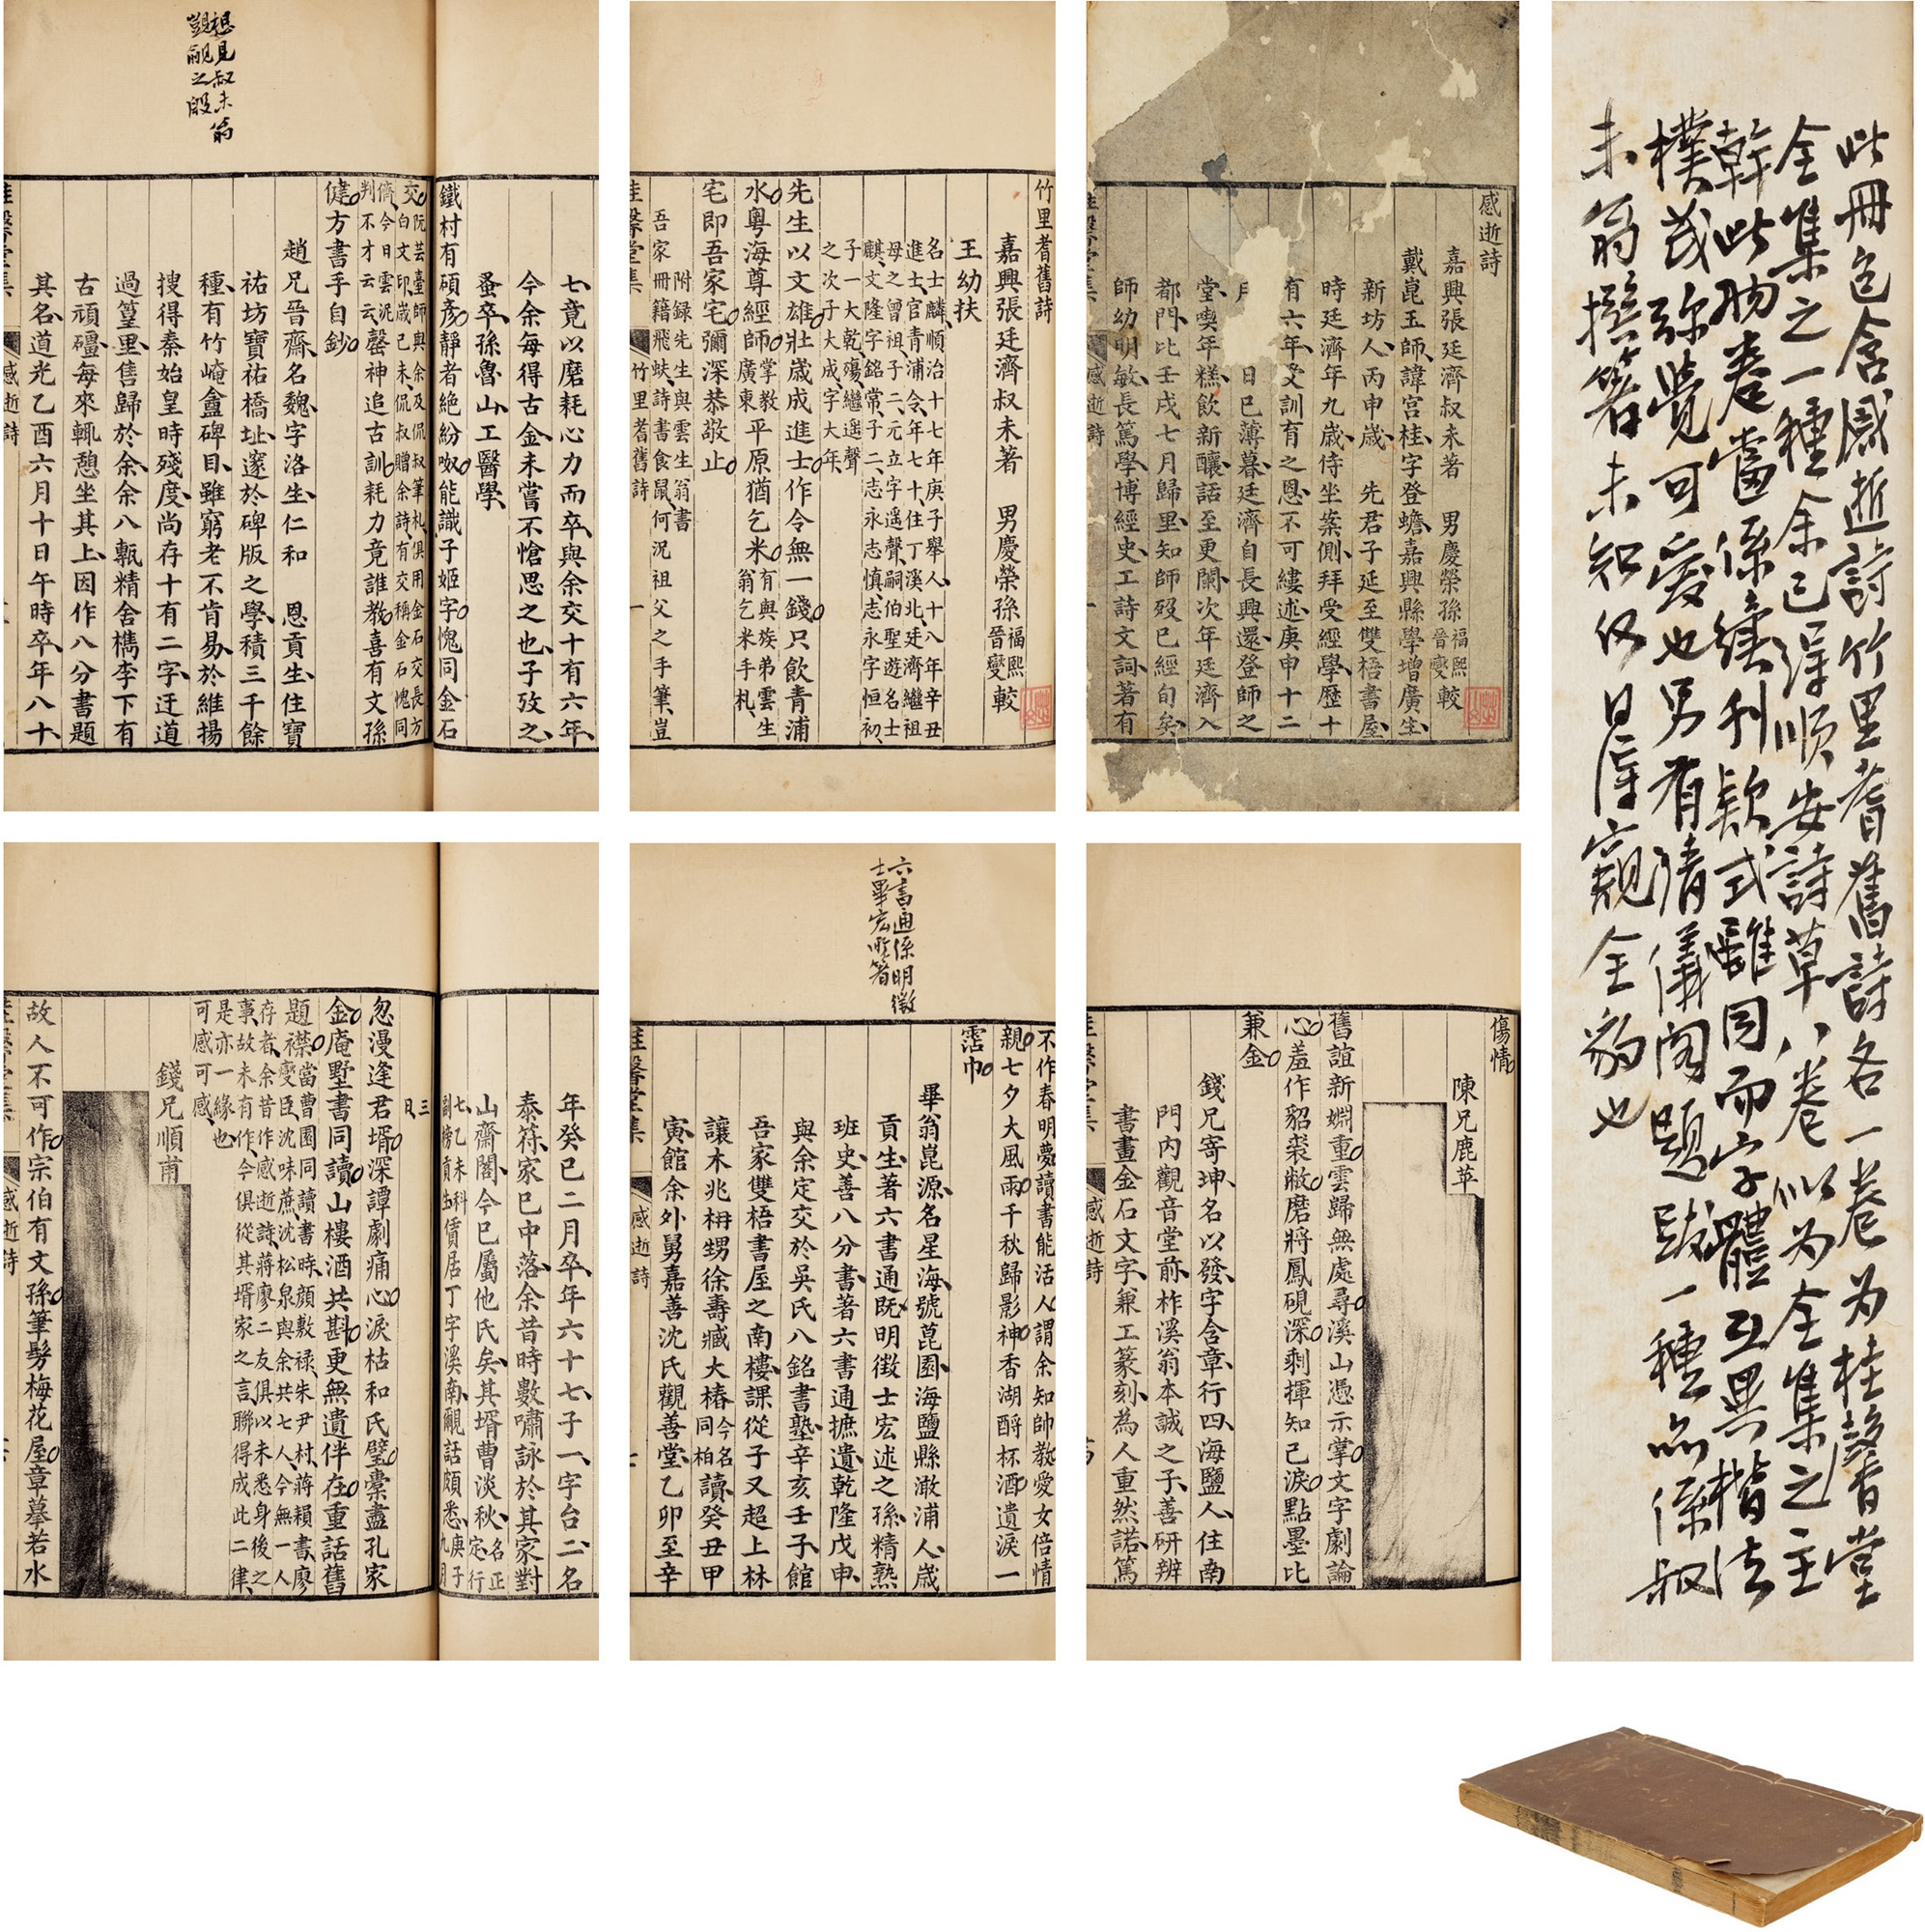 此冊包含感逝詩竹里耆舊詩各一卷为桂馨堂
全集之一種余已得順安詩草八卷似为全集之主
幹此兩卷當係續刊款式雖同而字體互異楷法
樸茂弥覺可爱也另有清儀閣題跋一種亦係叔
未翁撰著未知仅日得窺全豹也
感逝詩
嘉興張廷濟叔未著　男慶榮孫福熙晉燮較
戴崑玉師諱宮桂字登蟾嘉興縣學增廣生
新坊人丙申歲　先君子延至雙梧書屋
時廷濟年九歲侍坐案側拜受經學歷十
有六年受訓有之恩不可縷述庚申十二
月　日巳薄暮廷濟自長興還登師之
堂喫年糕飲新釀話至更闌次年廷濟入
都門比壬戌七月歸里知師歿已經旬矣
師幼明敏長篤學博經史工詩文詞著有
桂馨堂集　感逝詩　一
竹里耆舊詩
嘉興張廷濟叔未著　男慶榮孫福熙晉燮較
王幼扶
名士麟順治十七年庚子舉人十八年辛丑
進士官青浦令年七十住丁溪北廷濟繼祖
母之曾祖子二元立字遥聲嗣伯聖遊名士
麒文隆字銘常子二志永志慎志永字恒初
子一大乾殤繼遥聲
之次子大成字大年
先生以文雄壯歲成進士作令無一錢只飲青浦
水粵海尊經師掌教廣東平原猶乞米有與族弟雲生翁乞米手札
宅即吾家宅彌深恭敬止
附録先生與雲生翁書
吾家冊籍飛蚨詩書食鼠何況祖父之手筆豈
桂馨堂集　竹里耆舊詩　一
想見叔未翁
覬覦之殷
七竟以磨耗心力而卒與余交十有六年
今余每得古金未嘗不愴思之也子攷之
蚤卒孫魯山工醫學
鐵村有碩彥靜者絶紛呶能識子姬字愧同金石
交阮芸臺師與余及侃叔筆札俱用金石交長方
白文印歲己未侃叔贈余詩有交稱金石愧同
儕今日雲泥
判不才云云罄神追古訓耗力竟誰教喜有文孫
健方書手自鈔
趙兄晉齋名魏字洛生仁和　恩貢生住寶
祐坊寶祐橋址邃於碑版之學積三千餘
種有竹崦盦碑目雖窮老不肯易於維揚
搜得秦始皇時殘度尚存十有二字迂道
過篁里售歸於余余八甎精舍檇李下有
古頑礓每來輒憩坐其上因作八分書題
其名道光乙酉六月十日午時卒年八十
桂馨堂集　感逝詩
傷情
陳兄鹿苹
舊誼新婣重雲歸無處尋溪山憑示掌文字劇論
心羞作貂裘敝磨將鳳硯深剩揮知己淚點墨比
兼金
錢兄寄坤名以發字含章行四海鹽人住南
門內觀音堂前柞溪翁本誠之子善研辨
書畫金石文字兼工篆刻為人重然諾篤
桂馨堂集　感逝詩
六書通係明徵
士畢宏所著
不作春明夢讀書能活人謂余知帥教愛女倍情
親七夕大風雨千秋歸影神香湖酹杯酒遺淚一
霑巾
畢翁崑源名星海號崑園海鹽縣澉浦人歲
貢生著六書通既明徵士宏述之孫精熟
班史善八分書著六書通摭遺乾隆戊申
與余定交於吳氏八銘書塾辛亥壬子館
吾家雙梧書屋之南樓課從子又超上林
讓木兆枏甥徐壽臧大椿今名同柏讀癸丑甲
寅館余外舅嘉善沈氏觀善堂乙卯至辛
桂馨堂集　感逝詩　七
年癸巳二月卒年六十七子一字台二名
泰符家巳中落余昔時數嘯詠於其家對
山齋閣今巳屬他氏矣其壻曹淡秋名正定行
七乙未科
副榜貢出賃居丁字溪南覼話頗悉庚子九月
三日
忽漫逢君壻深譚劇痛心淚枯和氏璧橐盡孔家
金庵墅書同讀山樓酒共斟更無遺伴在重話舊
題襟當曹園同讀書時顔敷禄朱尹村蔣賴書廖
燮臣沈味蔗沈松泉與余共七人今無一人
存者余昔作感逝詩蔣廖二友俱以未悉身後之
事故未有作今俱從其壻家之言聯得成此二律
是亦一緣也
可感可感
錢兄順甫
故人不可作宗伯有文孫筆髣梅花屋章摹若水
桂馨堂集　感逝詩